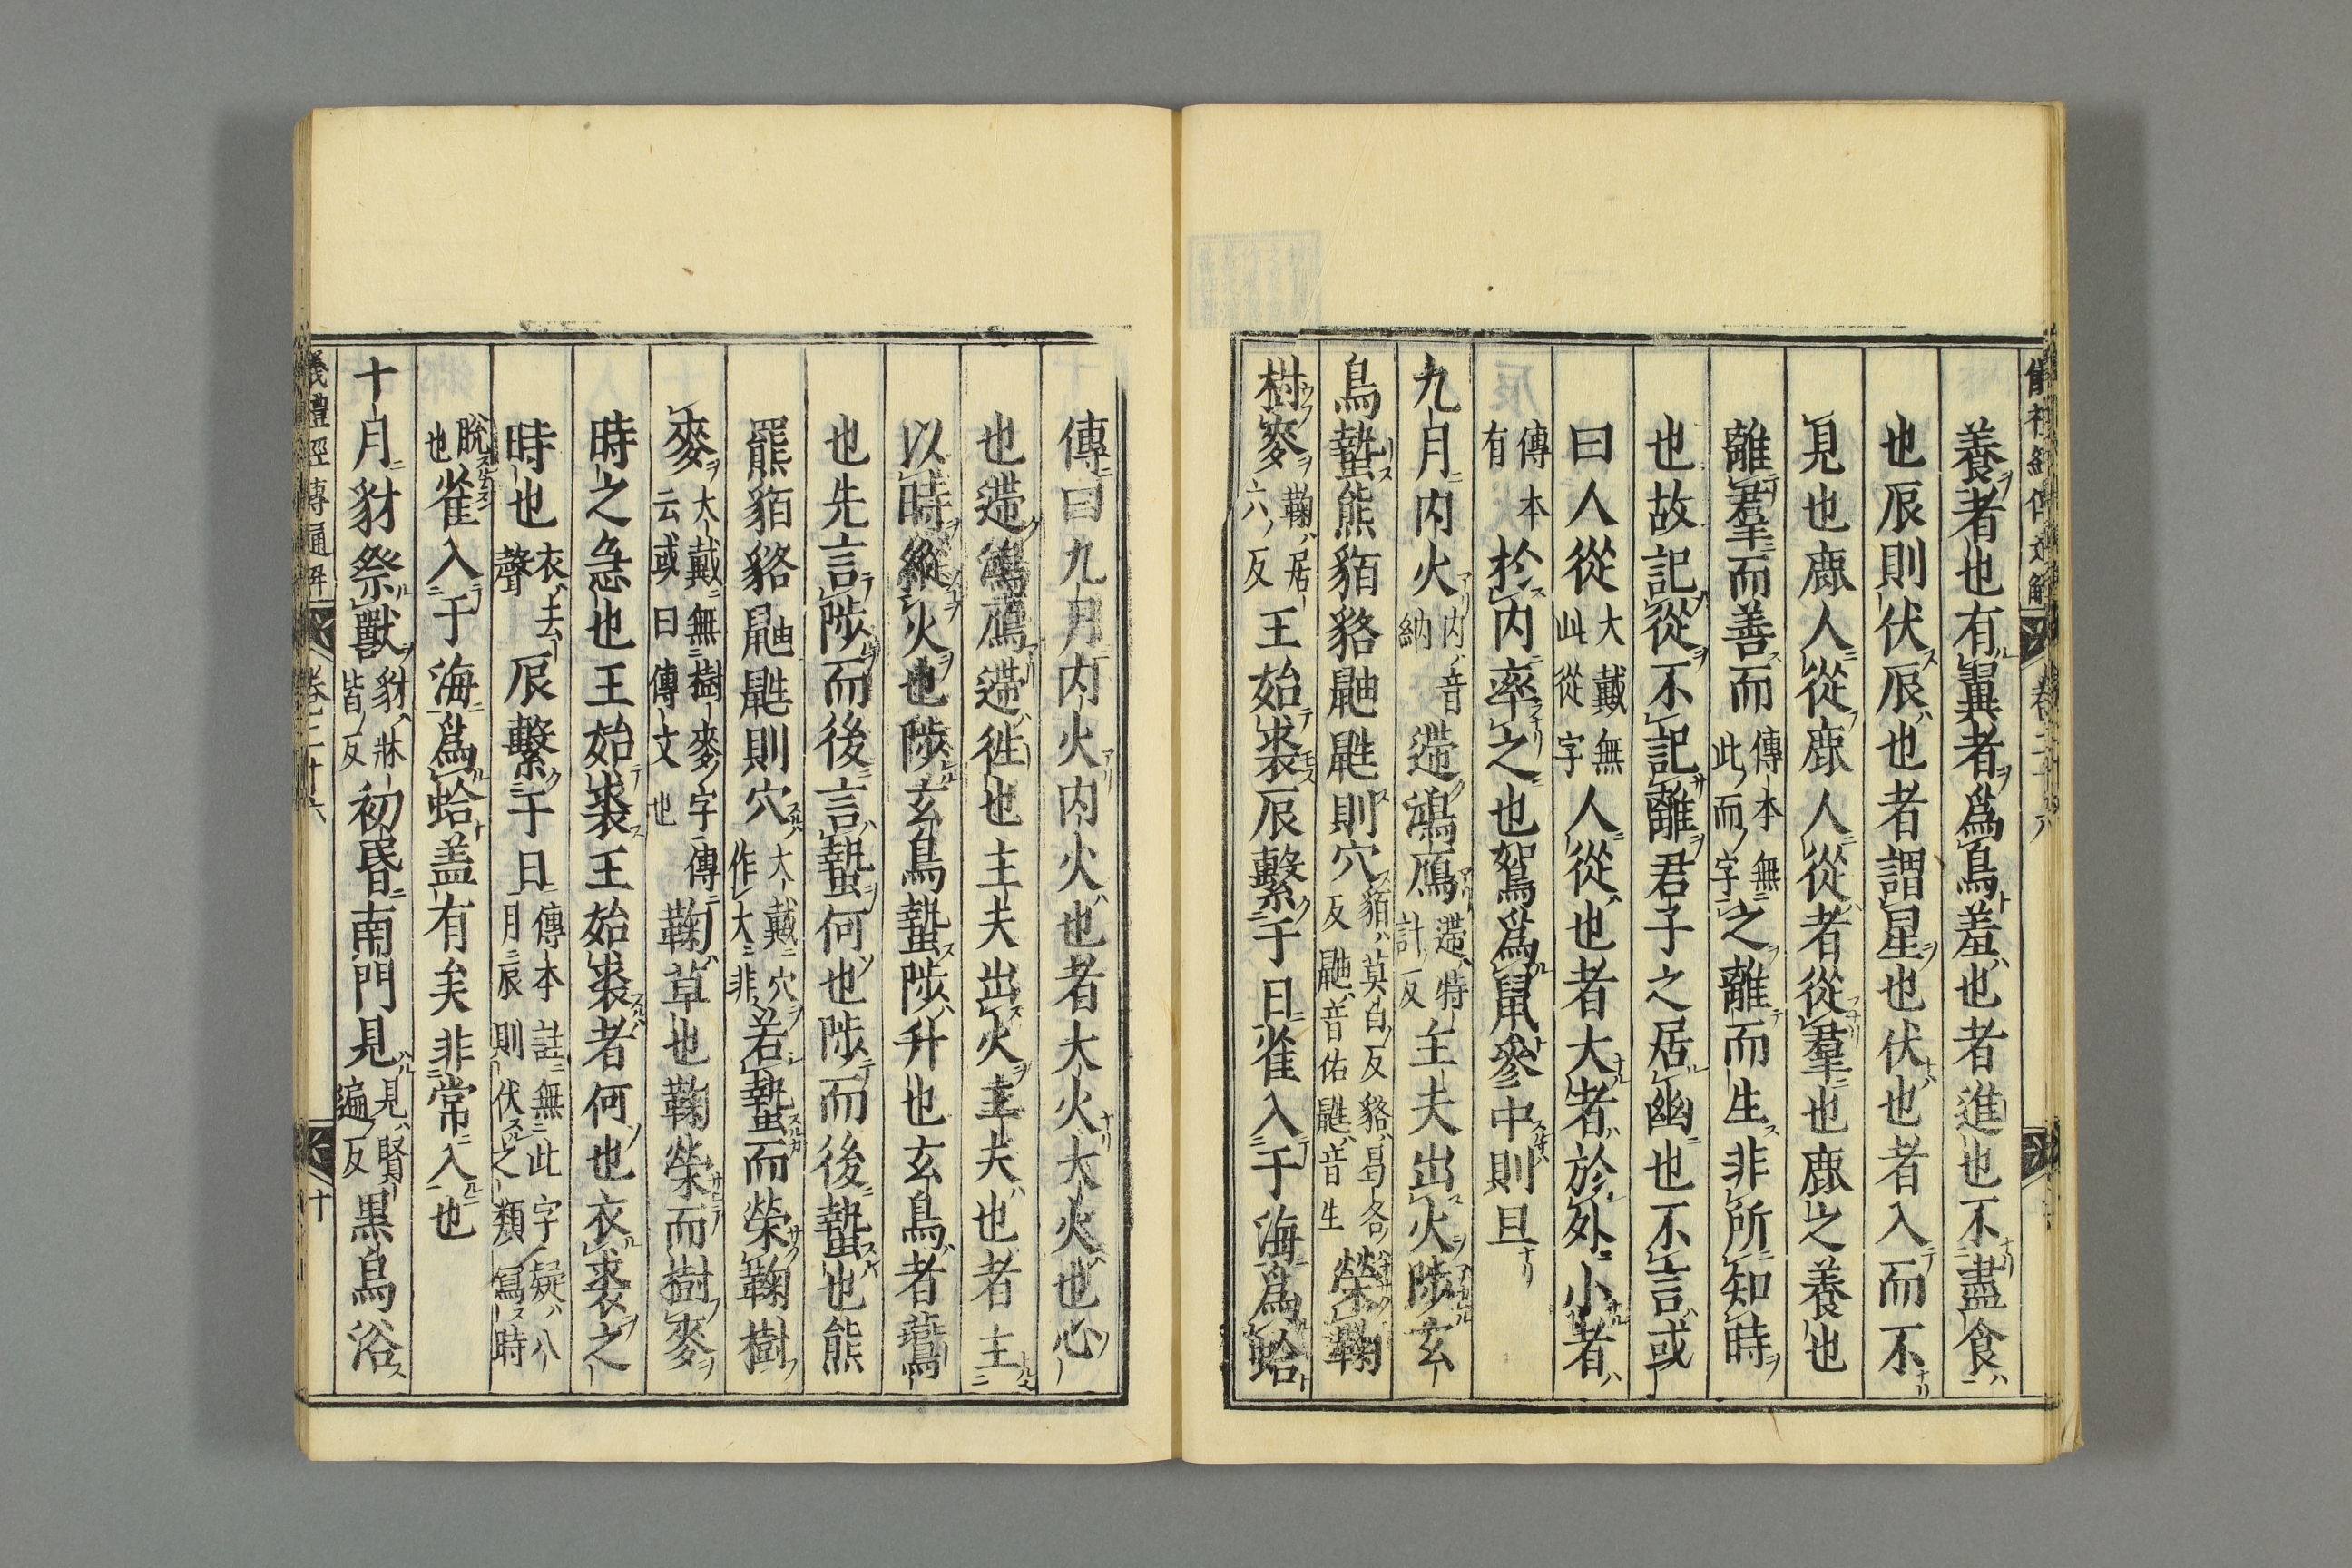 養者也有翼者爲鳥羞也者進也不盡食
也辰則伏辰也者謂星也伏也者入而不
見也鹿人從鹿人從者從羣也鹿之養也
離羣而善而傳本無此而字之離而生非所知時
也故記從不記離君子之居幽也不言或
曰人從大戴無此從字人從也者大者於外小者
有傳本於内率之也鴽爲鼠參中則旦
九月内火内音納遰鴻鴈遰特計反主夫出火陟玄
鳥蟄熊貊貉鼬鼪則穴貊莫白反貉曷各反鼬音佑鼪音生榮鞠
樹麥鞠居六反王始裘辰繫于日雀入于海爲蛤
儀禮經傳通解 卷二十六
傳曰九月内火内火也者大火大火也心
也遰鴻鴈遰徃也主夫出火主夫也者主
以時縱火也陟玄鳥蟄陟升也玄鳥者鷰
也先言陟而後言蟄何也陟而後蟄也熊
羆貊貉鼬鼪則穴大戴穴作大非若蟄而榮鞠樹
麥大戴無樹麥字傳云或曰傳文也鞠草也鞠榮而樹麥
時之急也王始裘王始裘者何也衣裘之
時也衣去聲辰繫于日傳本註無此字疑八月辰則伏之類寫時
脫也雀入于海爲蛤盖有矣非常入也
十月豺祭獸豺牀皆反初昏南門見見賢遍反黒鳥浴
儀禮經傳通解 卷二十六 十